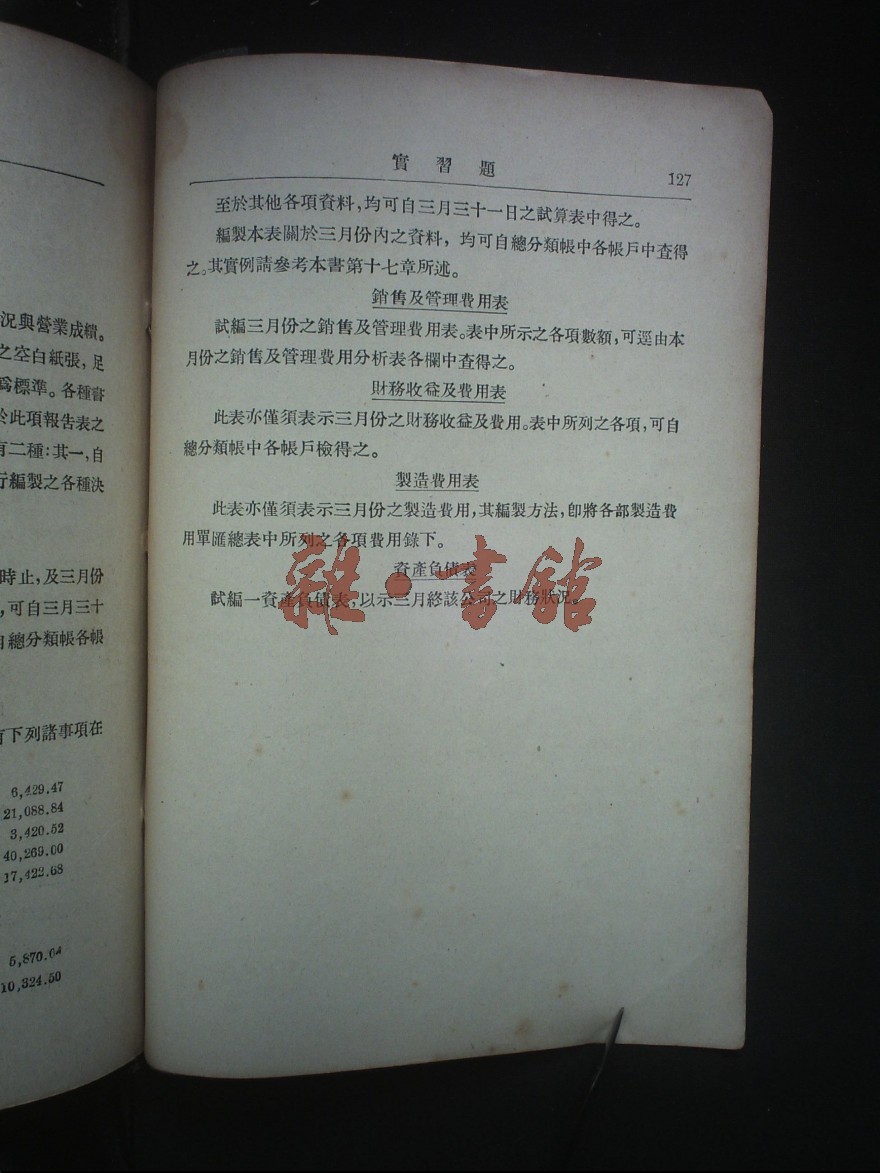 況與營業成績。
之空白紙張，足
爲標準。各種
於此項報告表之
有二種：其一，自
行編製之各種決
時止，及三月份
，可自三月三十
自總分類帳各帳
有下列諸事項在
6,429.47
21,088.84
3,420.52
40,269.00
17,422.68
5,870.04
10,324.50
實習題
127
至於其他各項資料，均可自三月三十一日之試算表中得之。
編製本表關於三月份內之資料，均可自總分類帳中各帳戶中查得
之。其實例請參考本書第十七章所述。
銷售及管理費用表
試編三月份之銷售及管理費用表。表中所示之各項數額，可逕由本
月份之銷售及管理費用分析表各欄中查得之。
財務收益及費用表
此表亦僅須表示三月份之財務收益及費用。表中所列之各項，可自
總分類帳中各帳戶檢得之。
製造費用表
此表亦僅須表示三月份之製造費用，其編製方法，卽將各部製造費
用單匯總表中所列之各項費用錄下。
資產負債表
試編一資產負債表，以示三月終該公司之財務狀況。
雜·書館